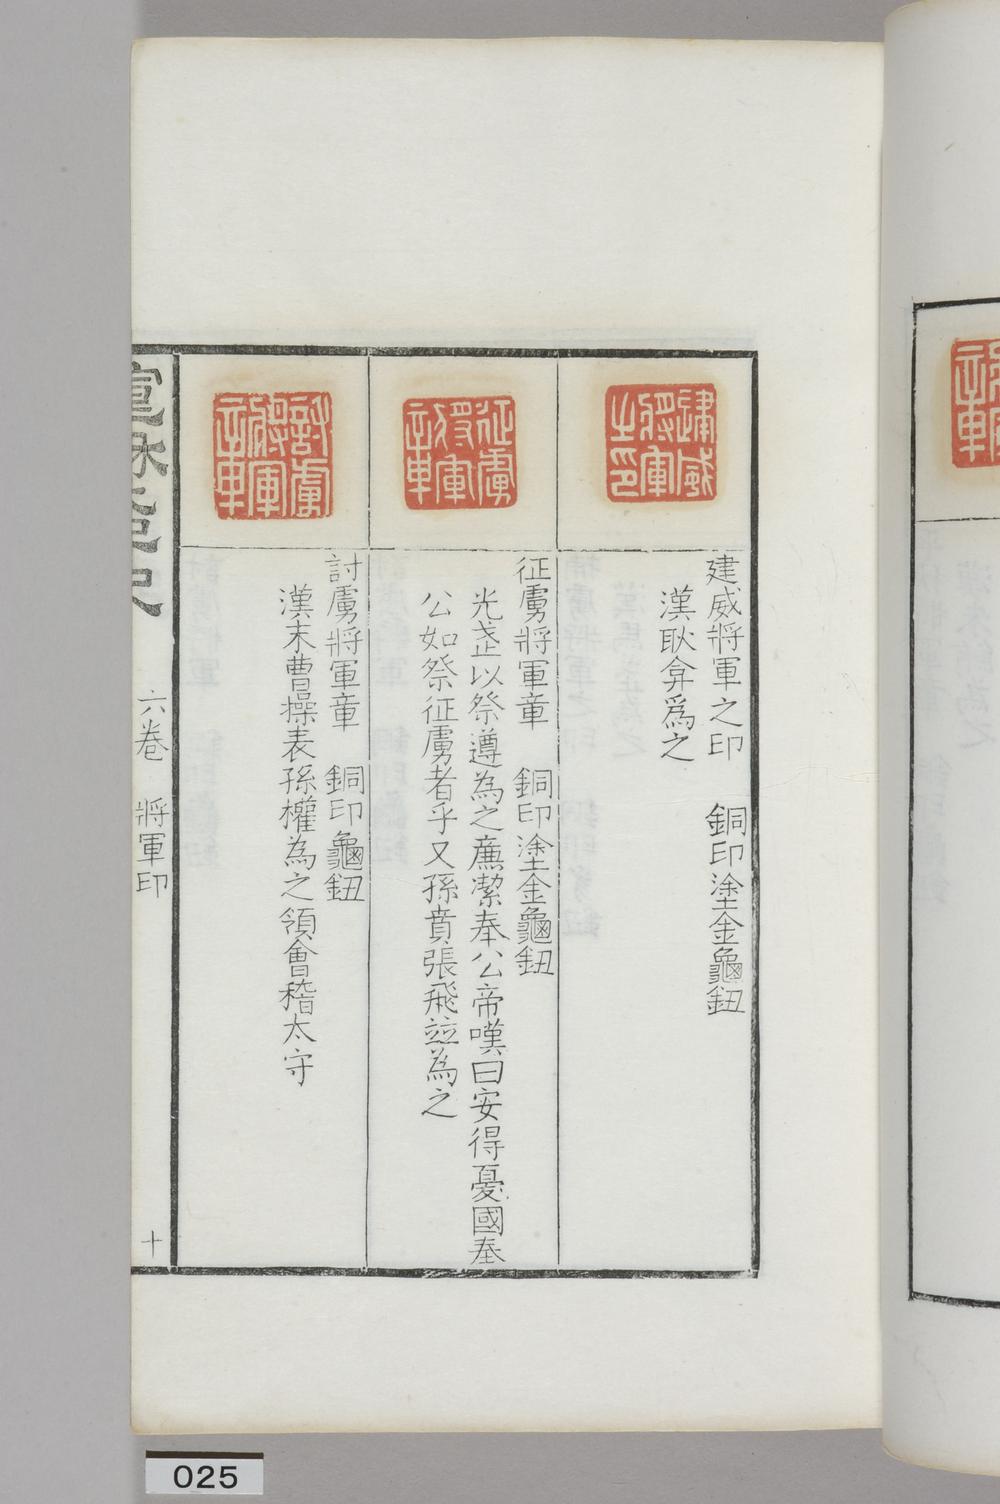 建威將軍之印
建威將軍之印 銅印塗金龜鈕
漢耿弇爲之
征虜將軍章
征虜將軍章 銅印塗金龜鈕
光武以祭遵為之廉潔奉公帝嘆曰安得憂國奉
公如祭征虜者乎又孫賁張飛竝為之
討虜將軍章
討虜將軍章 銅印龜鈕
漢末曹操表孫權為之領會稽太守
宣和集古印史
六卷 將軍印
十
025